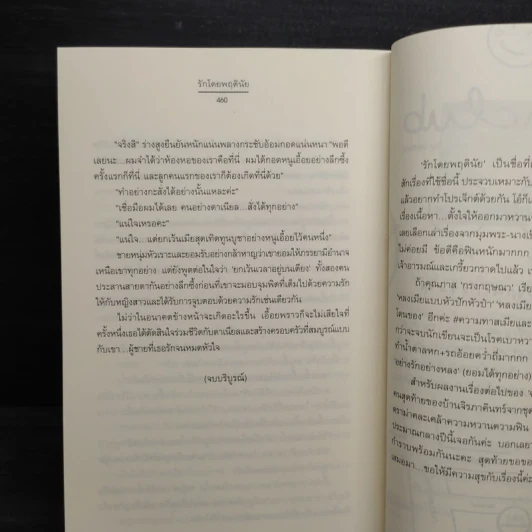 รักโดยพฤตินัย
460
"จริงสิ" ร่างสูงยืนยันหนักแน่นพลางกระชับอ้อมกอดแน่นหนา "พอดี
เลยนะ...ผมจำได้ว่าห้องหอของเราคือที่นี่ ผมได้กอดหนูเอื้อยอย่างลึกซึ้ง
ครั้งแรกก็ที่นี่ และลูกคนแรกของเราก็ต้องเกิดที่นี่ด้วย"
"ทำอย่างกะสั่งได้อย่างนั้นแหละค่ะ"
"เชื่อมือผมได้เลย คนอย่างดาเนียล...สั่งได้ทุกอย่าง"
"แน่ใจเหรอคะ"
"แน่ใจ...แต่ยกเว้นเมียสุดเทิดทูนบูชาอย่างหนูเอื้อยไว้คนหนึ่ง"
ชายหนุ่มหัวเราะและยอมรับอย่างกล้าหาญว่าเขายอมให้ภรรยามีอำนาจ
เหนือเขาทุกอย่าง แต่ยังพูดต่อในใจว่า 'ยกเว้นเวลาอยู่บนเตียง' ทั้งสองคน
ประสานสายตากันอย่างลึกซึ้งก่อนที่เขาจะมอบจุมพิตที่เต็มไปด้วยความรัก
ให้กับหญิงสาวและได้รับการจูบตอบด้วยความรักเช่นเดียวกัน
ไม่ว่าในอนาคตข้างหน้าจะเกิดอะไรขึ้น เอื้อยพราวก็จะไม่เสียใจที่
ครั้งหนึ่งเธอได้ตัดสินใจร่วมชีวิตกับดาเนียลและสร้างครอบครัวที่สมบูรณ์แบบ
กับเขา...ผู้ชายที่เธอรักจนหมดหัวใจ
(จบบริบูรณ์)
'รักโดยพฤตินัย' เป็นชื่อที่
สักเรื่องที่ใช้ชื่อนี้ ประจวบเหมาะกับ
แล้วอยากทำโปรเจ็กต์ด้วยกัน โอ๋ก็
เรื่องเนื้อหา...ตั้งใจให้ออกมาหวาน
เลยเลือกเล่าเรื่องจากมุมพระ-นาง
ไม่ค่อยมี ข้อดีคือฟินหนักมากกก
เจ้าอารมณ์และเกรี้ยวกราดไปแล้ว
ถ้าคุณภาส 'กรงกฤษณา' เรีย
'หลงเมียแบบหัวปักหัวปำ' 'หลงเมีย
โดนของ' อีกค่ะ #ความทาสเมียและ
กว่าจะจบนักเขียนจะเป็นโรคเบาหวา
ทำน้ำตาลหก+รถอ้อยคว่ำถี่มากกก
'อย่างรักอย่างหลง' (ยอมได้ทุกอย่าง)
สำหรับผลงานเรื่องต่อไปของ
คนสุดท้ายของบ้านจิรภาคินทร์จากชุด
ดราม่าคละเคล้าความหวานความฟิน
ประมาณกลางปีนี้เจอกันค่ะ บอกเลย
กำราบพร้อมกันนะคะ สุดท้ายขอขอ
เสมอมา...ขอให้มีความสุขกับเรื่องนี้ค่ะ